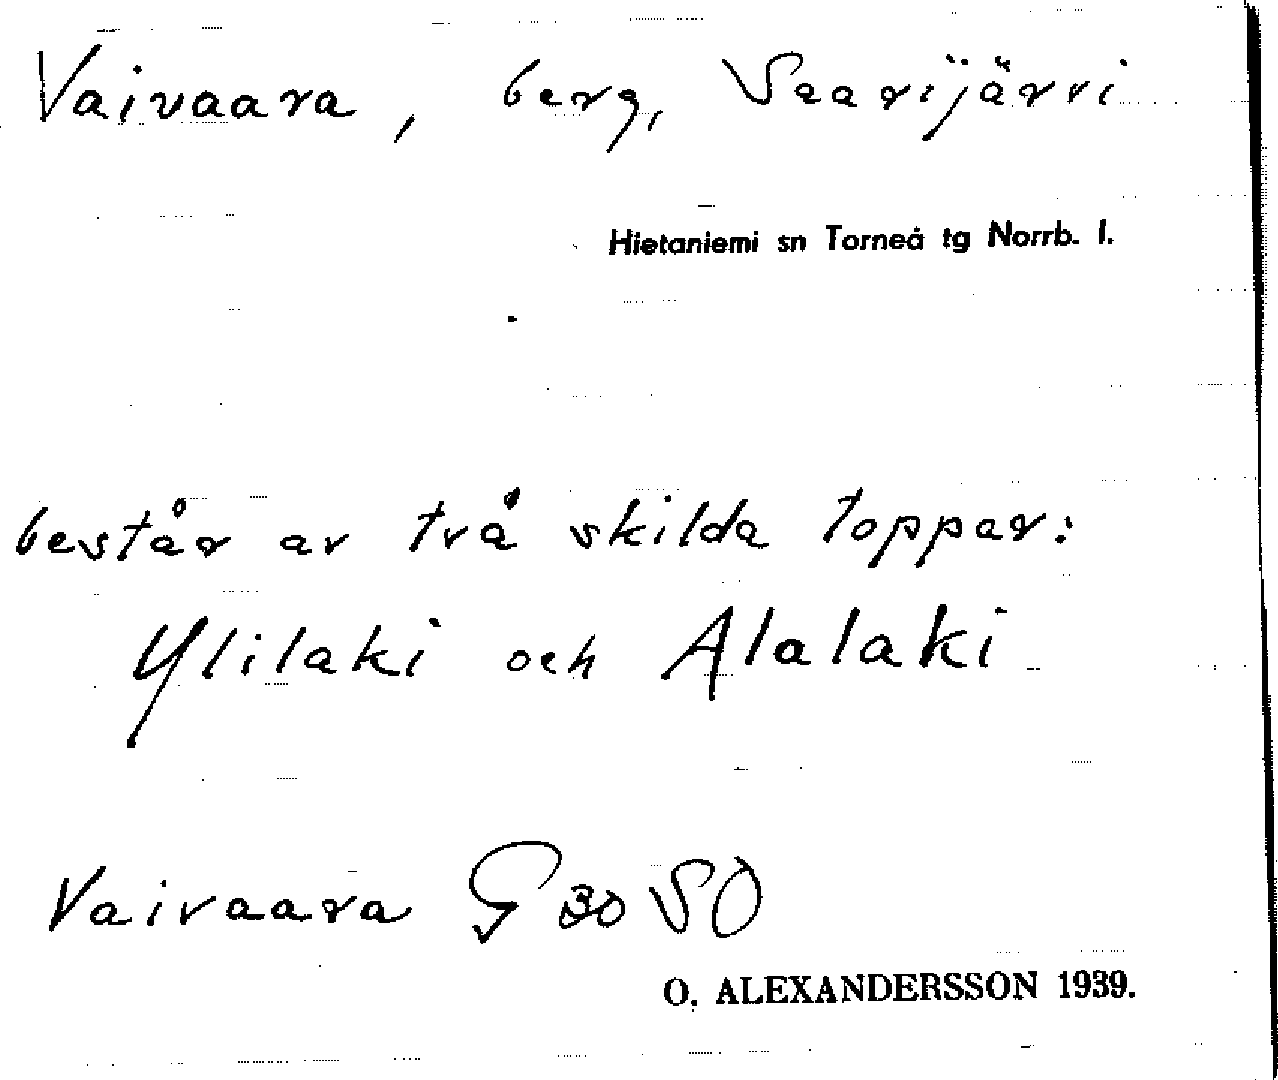 Vaivaara, berg, Saarijärvi
Hietaniemi sn Torneå tg Norrb. l.
består av två skilda toppar:
Ylilaki och Alalaki
Vaivaara G 30 SO
O. ALEXANDERSSON 1939.